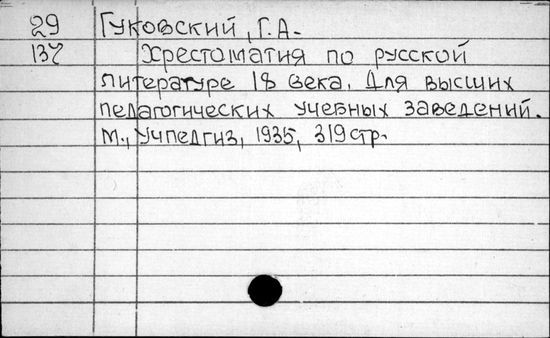 29 Гуковский, Г.А.
137 Хрестоматия по русской
литературе 18 века. Для высших
педагогических учебных заведений.
М., Учпедгиз, 1935, 319 стр.